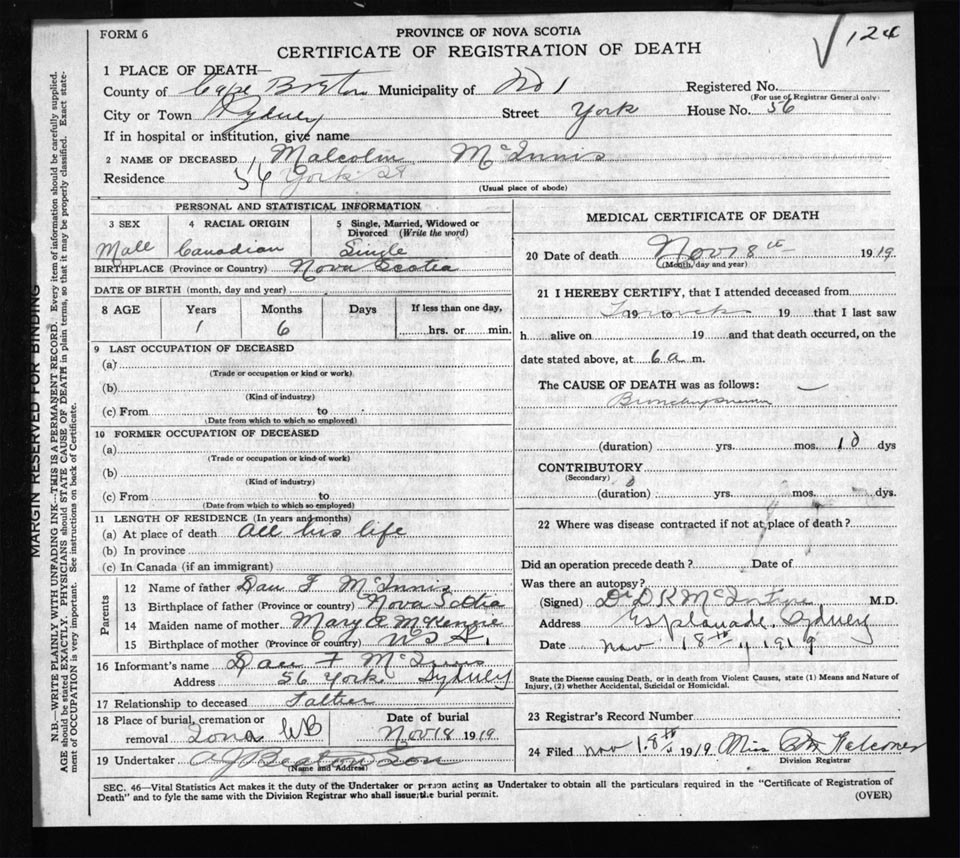 FORM 6
PROVINCE OF NOVA SCOTIA
CERTIFICATE OF REGISTRATION OF DEATH
124
1 PLACE OF DEATH—
County of Cape Breton Municipality of No 1 Registered No.
(For use of Registrar General only)
City or Town Sydney Street York House No. 56
If in hospital or institution, give name
2 NAME OF DECEASED Malcolm McInnis
Residence 56 York St
(Usual place of abode)
PERSONAL AND STATISTICAL INFORMATION
3 SEX 4 RACIAL ORIGIN 5 Single, Married, Widowed or Divorced (Write the word)
Male Canadian Single
BIRTHPLACE (Province or Country) Nova Scotia
DATE OF BIRTH (month, day and year)
8 AGE Years Months Days If less than one day,
1 6 hrs. or min.
9 LAST OCCUPATION OF DECEASED
(a)
(Trade or occupation or kind or work)
(b)
(Kind of industry)
(c) From to
(Date from which to which so employed)
10 FORMER OCCUPATION OF DECEASED
(a)
(Trade or occupation or kind of work)
(b)
(Kind of industry)
(c) From to
(Date from which to which so employed)
11 LENGTH OF RESIDENCE (In years and months)
(a) At place of death All his life
(b) In province
(c) In Canada (if an immigrant)
Parents
12 Name of father Dan F McInnis
13 Birthplace of father (Province or country) Nova Scotia
14 Maiden name of mother Mary A McKenzie
15 Birthplace of mother (Province or country) N S
16 Informant's name Dan F McInnis
Address 56 York Sydney
17 Relationship to deceased Father
18 Place of burial, cremation or removal Iona CB
Date of burial Nov 18 1919
19 Undertaker A J Beaton & Son
(Name and Address)
MEDICAL CERTIFICATE OF DEATH
20 Date of death Nov 18th 1919
(Month, day and year)
21 I HEREBY CERTIFY, that I attended deceased from
19 to 19 that I last saw
h alive on 19 and that death occurred, on the
date stated above, at 6 a m.
The CAUSE OF DEATH was as follows:
(duration) yrs. mos. 10 dys
CONTRIBUTORY
(Secondary)
(duration) yrs. mos. dys.
22 Where was disease contracted if not at place of death?
Did an operation precede death? Date of
Was there an autopsy?
(Signed) Dr D R McIntyre M.D.
Address Esplanade, Sydney
Date Nov 18th 1919
State the Disease causing Death, or in death from Violent Causes, state (1) Means and Nature of
Injury, (2) whether Accidental, Suicidal or Homicidal.
23 Registrar's Record Number
24 Filed Nov 18th 1919 Miss Falconer
Division Registrar
SEC. 46—Vital Statistics Act makes it the duty of the Undertaker or person acting as Undertaker to obtain all the particulars required in the "Certificate of Registration of
Death" and to fyle the same with the Division Registrar who shall issue the burial permit.
(OVER)
MARGIN RESERVED FOR BINDING
N.B.—WRITE PLAINLY WITH UNFADING INK—THIS IS A PERMANENT RECORD. Every item of information should be carefully supplied.
AGE should be stated EXACTLY. PHYSICIANS should STATE CAUSE OF DEATH in plain terms, so that it may be properly classified. Exact state-
ment of OCCUPATION is very important. See instructions on back of Certificate.